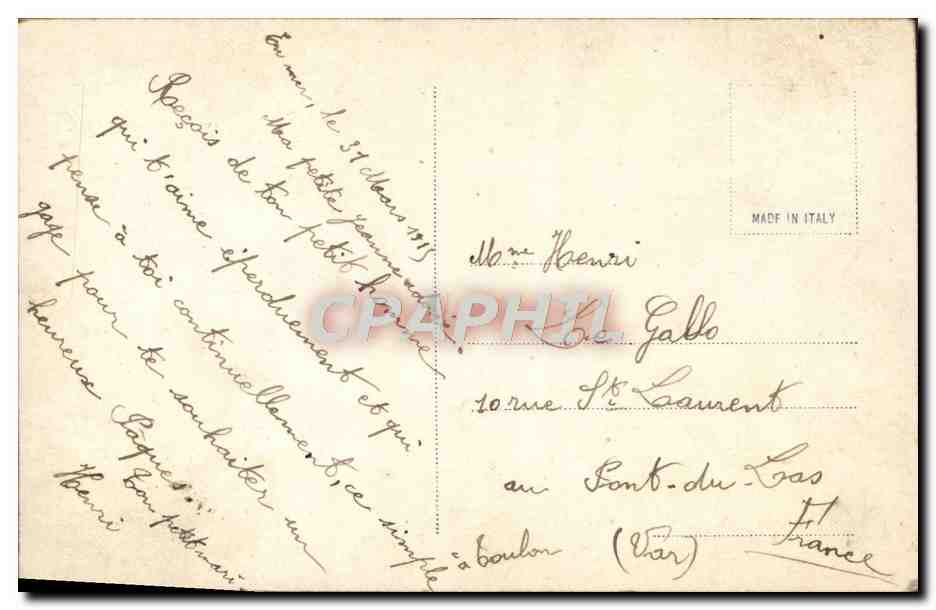 En mer, le 31 Mars 1915
Ma petite Jeanne adorée!
Reçois de ton petit homme
qui t'aime éperduement et qui
pense à toi continuellement, ce simple
gage pour te souhaiter un
heureux Pâques...
Ton petit mari
Henri
MADE IN ITALY
Mme Henri
Le Gallo
10 rue St Laurent
au Pont-du-Las
à Toulon (Var)
France
CPAPHIL